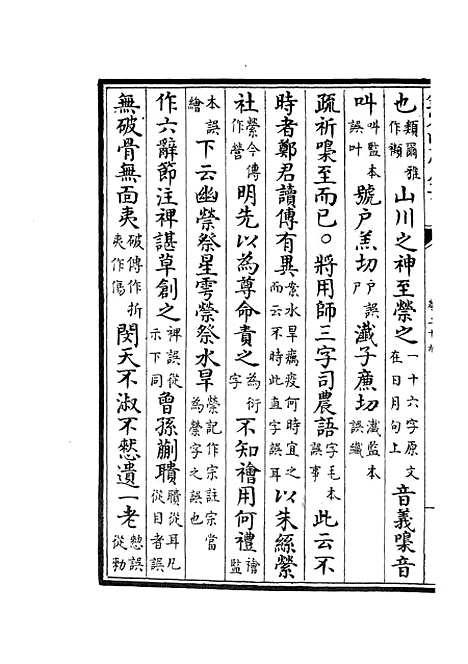 也類爾雅作禷山川之神至禜之一十六字原文在日月句上音義嘷音
叫叫監本誤叶號户羔切户誤尸瀸子廉切瀸監本誤纎
疏祈嘷至而已○將用師三字司農語字毛本誤事此云不
時者鄭君讀傳有異案水旱癘疫何時宜之而云不時此直字誤耳以朱絲禜
社禜今傳作營明先以為尊命責之為衍字不知禬用何禮禬監
本誤繪下云幽禜祭星雩禜祭水旱禜記作宗註宗當為禜字之誤也
作六辭節注裨諶草創之裨誤從示下同曾孫蒯聵聵從耳凡從目者誤
無破骨無面夷破傳作折夷作傷閔天不淑不憖遺一老憖誤從勑